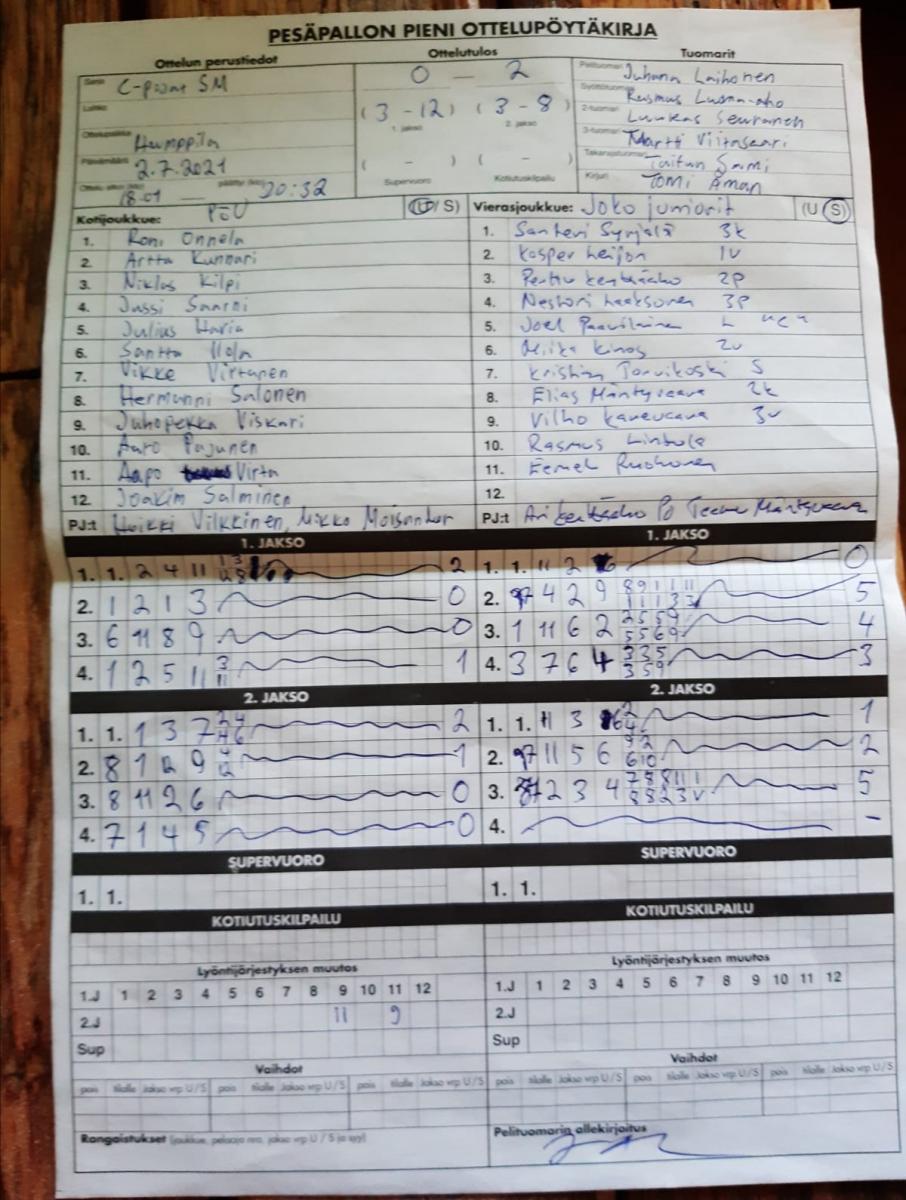 PESÄPALLON PIENI OTTELUPÖYTÄKIRJA
Ottelun perustiedot Ottelutulos Tuomarit
Sarja C-pojat SM 0 – 2 Pelituomari Juhana Laihonen
Lohko (3 – 12) (3 – 8) Syöttötuomari Rasmus
1. jakso 2. jakso 2-tuomari Luukas Seuranen
Ottelupaikka Humppila 3-tuomari Martti Viitasaari
Päivämäärä 2.7.2021 ( – ) ( – ) Takarajatuomari Sami
Ottelu alkoi (klo) 18.01 päättyi (klo) 20:32 Supervuoro Kotiutuskilpailu Kirjuri Tomi Åman
Kotijoukkue: PöU (U/S) Vierasjoukkue: Joko juniorit (U/S)
1. Roni Onnela 1. Santeri Syrjälä 3k
2. Arttu Kunnari 2. Kasper 1v
3. Niklas Kilpi 3. Perttu 2p
4. Jussi Saarni 4. Nestori Laaksonen 3p
5. Julius Haria 5. Joel Paavilainen L
6. Santtu 6. Miika Kinos 2v
7. Vikke Virtanen 7. Kristian Torvikoski S
8. Hermanni Salonen 8. Elias Mäntyvaara 2k
9. Juhopekka Viskari 9. Vilho 3v
10. Aaro Pajunen 10. Rasmus
11. Aapo Virta 11. Eemel Ruohonen
12. Joakim Salminen 12.
PJ:t Heikki Vilkkinen, Mikko PJ:t Ari Teemu Mäntyvaara
1. JAKSO 1. JAKSO
1. 1. 2 4 11 2 1. 1. 11 2 0
2. 1 2 1 3 0 2. 7 4 2 9 5
3. 6 11 8 9 0 3. 1 11 6 2 4
4. 1 2 5 11 3 11 1 4. 3 7 6 4 3 3 5 3 5 9 3
2. JAKSO 2. JAKSO
1. 1. 1 3 7 2 1. 1. 11 3 1
2. 8 1 12 9 1 2. 7 11 5 6 2
3. 8 11 2 6 0 3. 1 2 3 4 5
4. 7 1 4 5 0 4. –
SUPERVUORO SUPERVUORO
1. 1. 1. 1.
KOTIUTUSKILPAILU KOTIUTUSKILPAILU
Lyöntijärjestyksen muutos Lyöntijärjestyksen muutos
1.J 1 2 3 4 5 6 7 8 9 10 11 12 1.J 1 2 3 4 5 6 7 8 9 10 11 12
2.J 11 9 2.J
Sup Sup
Vaihdot Vaihdot
pois tilalle Jakso vrp U/S pois tilalle Jakso vrp U/S pois tilalle Jakso vrp U/S pois tilalle Jakso vrp U/S pois tilalle Jakso vrp U/S pois tilalle Jakso vrp U/S
Rangaistukset (joukkue, pelaaja nro, jakso vrp U / S ja syy) Pelituomarin allekirjoitus